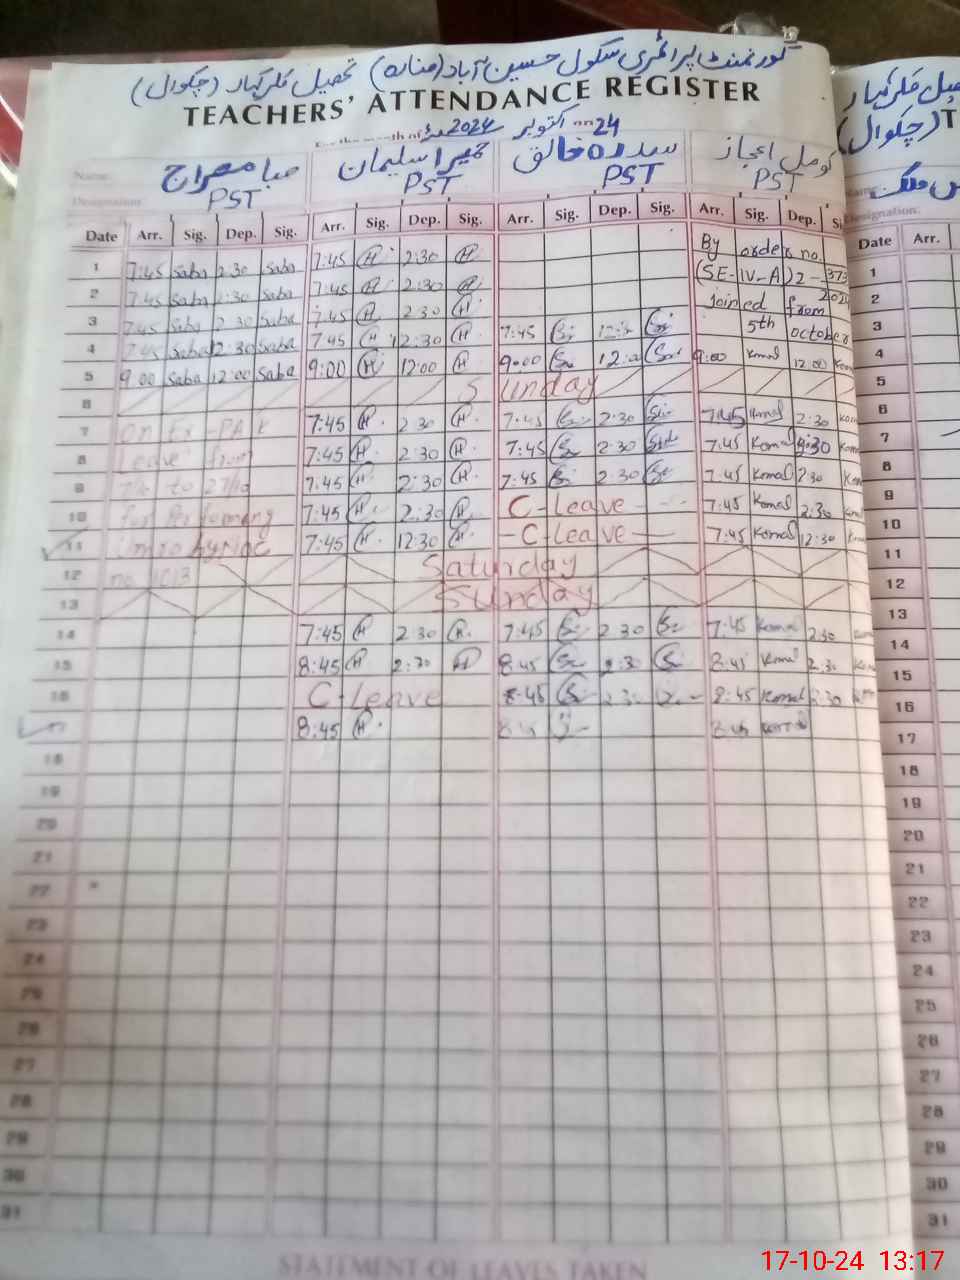 گورنمنٹ پرائمری سکول حسین آباد (منارہ) تحصیل کلرکہار (چکوال)
TEACHERS' ATTENDANCE REGISTER
For the month of اکتوبر 2024 24
Name صبا معراج حمیرا سلیمان سدرہ خالق کومل اعجاز
Designation PST PST PST PST
Date Arr. Sig. Dep. Sig. Arr. Sig. Dep. Sig. Arr. Sig. Dep. Sig. Arr. Sig. Dep.
1 7:45 Saba 2:30 Saba 7:45 H 2:30 H By order no.
2 7:45 Saba 2:30 Saba 7:45 H 2:30 H (SE-IV-A)2-
3 7:45 Saba 2:30 Saba 7:45 H 2:30 H joined from
4 7:45 Saba 12:30 Saba 7:45 H 12:30 H 7:45 5th October
5 9:00 Saba 12:00 Saba 9:00 H 12:00 H 9:00 12:00 9:00 Komal 12:00
6 Sunday
7 On Ex-Pak 7:45 H 2:30 H 7:45 2:30 7:45 Komal 2:30
8 Leave from 7:45 H 2:30 H 7:45 2:30 7:45 Komal 2:30
9 7/10 to 27/10 7:45 H 2:30 H 7:45 2:30 7:45 Komal 2:30
10 for Performing 7:45 H 2:30 H C-Leave 7:45 Komal 2:30
11 Umra 7:45 H 12:30 H C-Leave 7:45 Komal 12:30
12 no. 1013 Saturday
13 Sunday
14 7:45 H 2:30 H 7:45 2:30 7:45 Komal 2:30
15 8:45 H 2:30 H 8:45 2:30 8:45 Komal 2:30
16 C-Leave 8:45 2:30 8:45 Komal 2:30
17 8:45 H 8:45 8:45 Komal
18
19
20
21
22
23
24
25
26
27
28
29
30
31
STATEMENT OF LEAVES TAKEN
(چکوال)
Designation.
Date Arr.
1
2
3
4
5
6
7
8
9
10
11
12
13
14
15
16
17
18
19
20
21
22
23
24
25
26
27
28
29
30
31
17-10-24 13:17